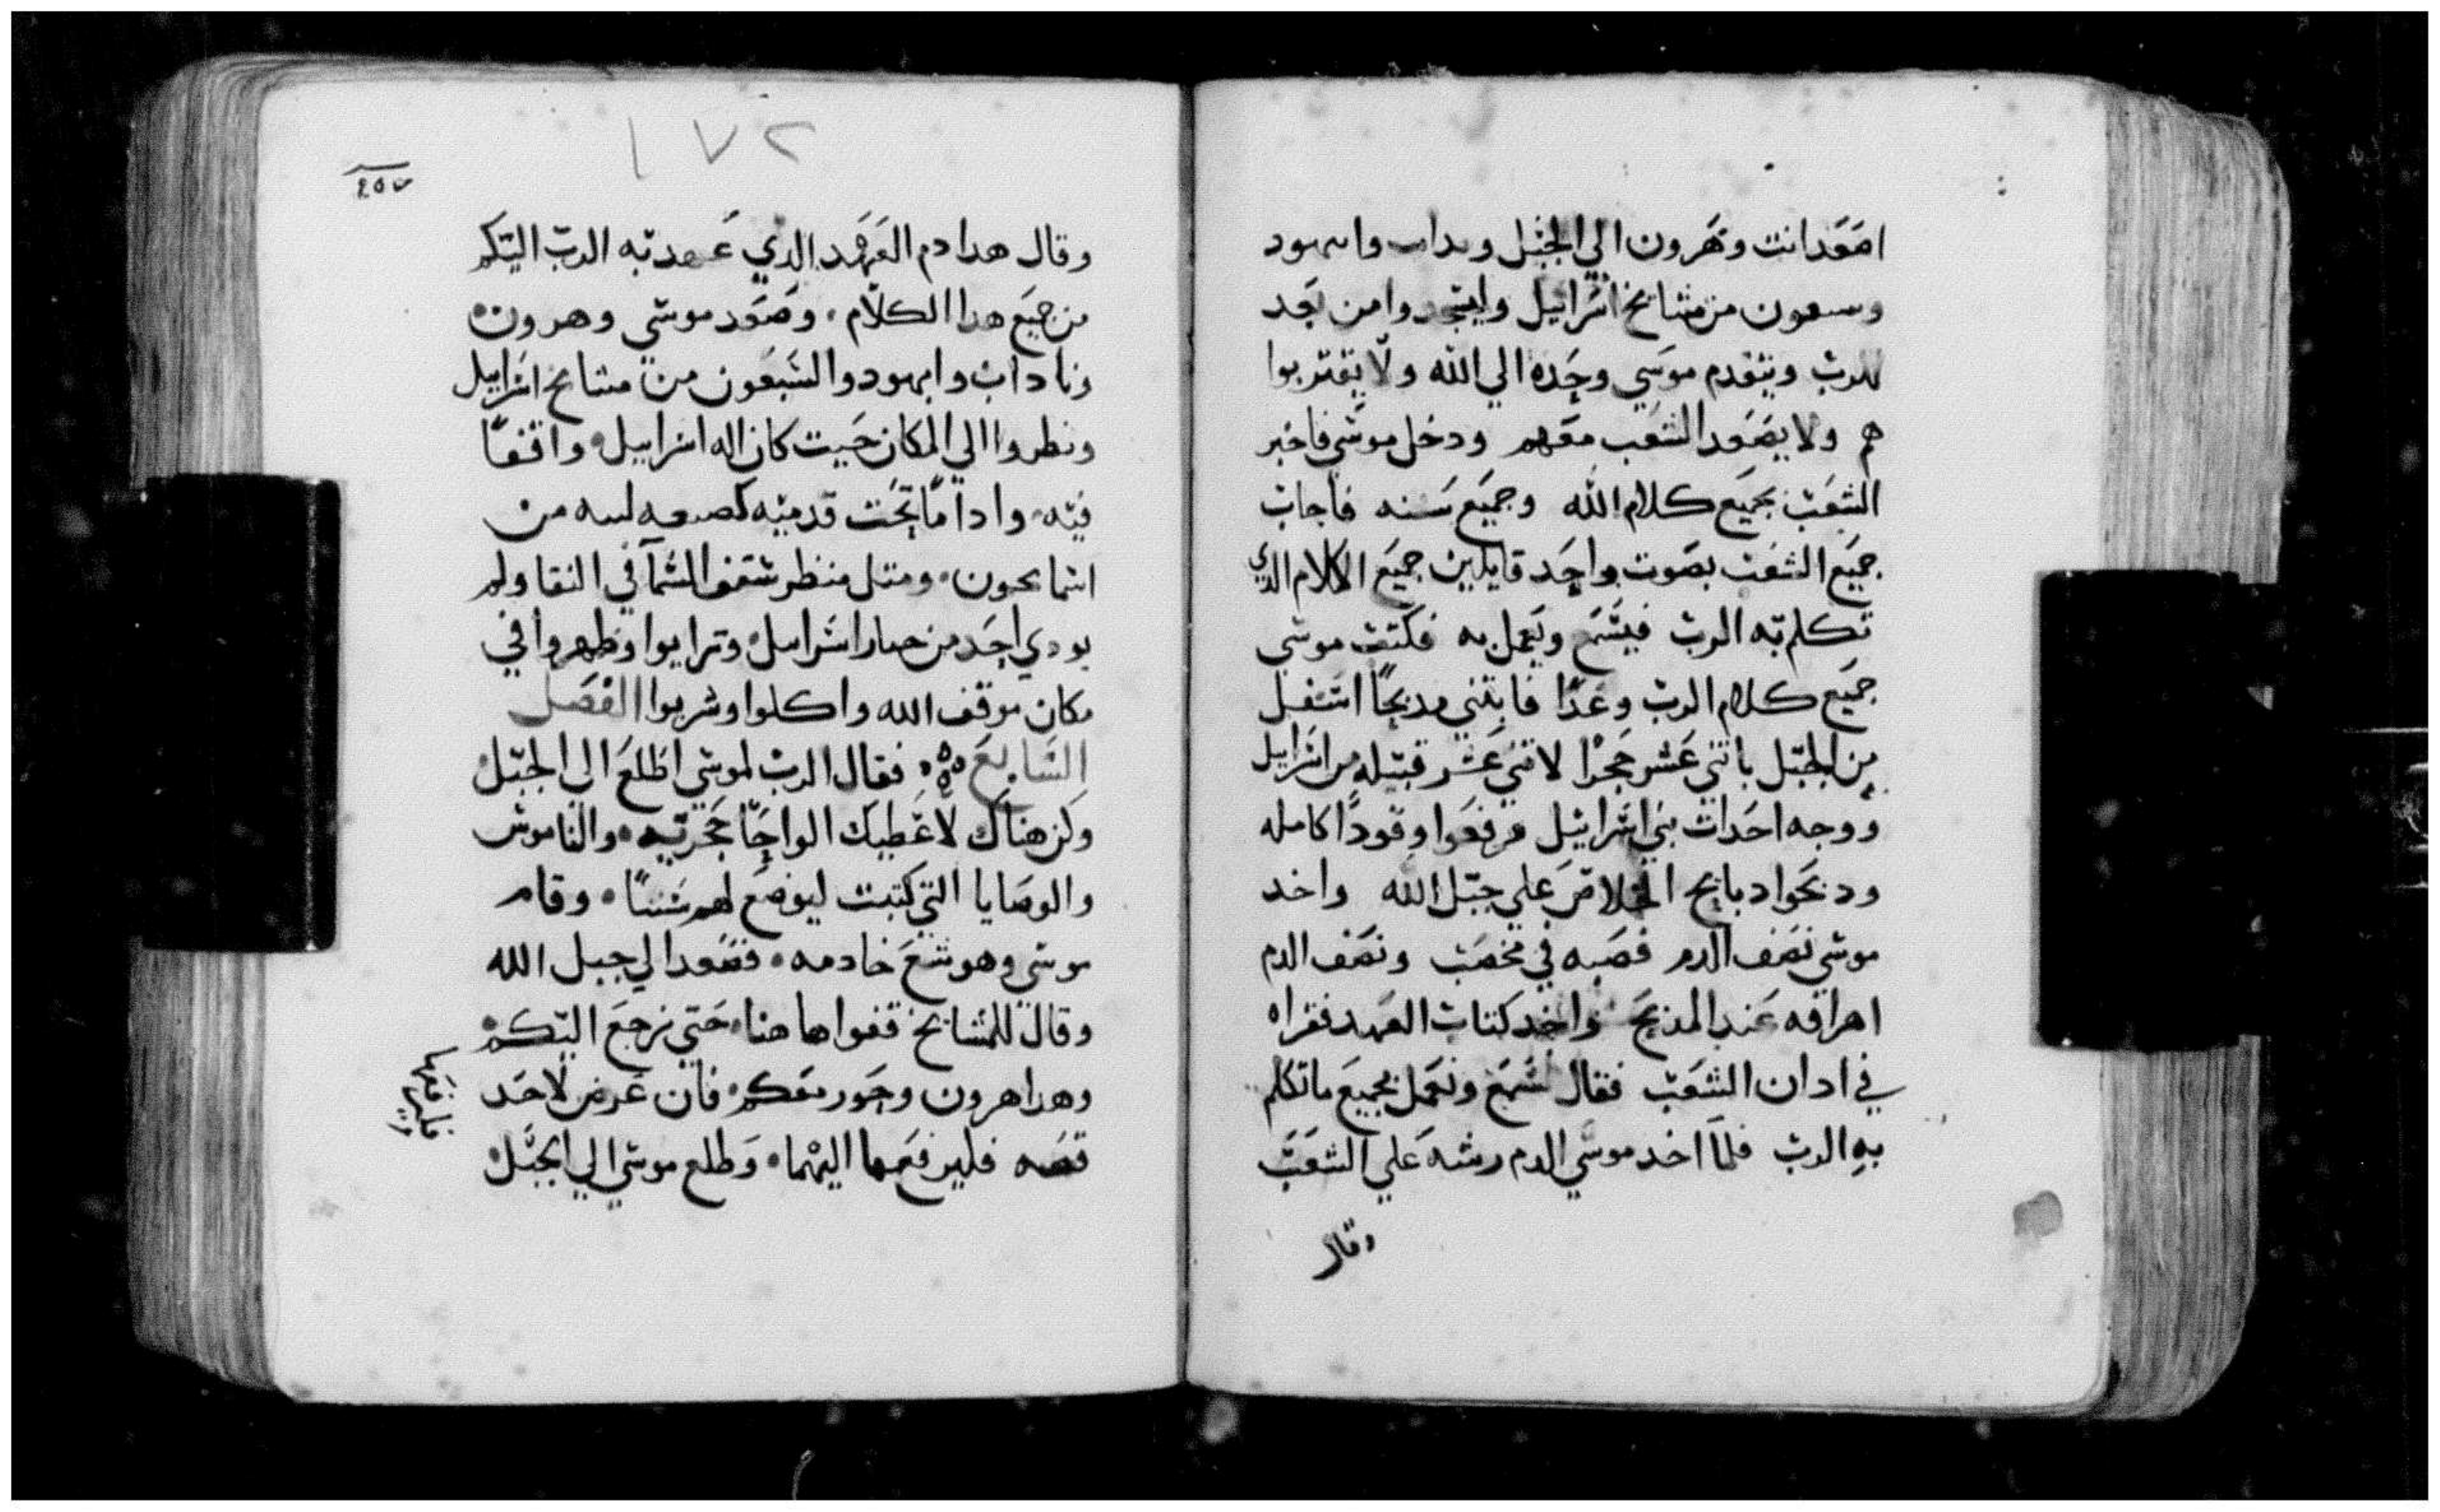 اصعد انت وهرون الي الجبل وناداب وابيهود
وسبعون من مشايخ اسراييل وليسجدوا من بعد
للرب ويتقدم موسي وحده الي الله ولا يقتربوا
هم ولا يصعد الشعب معهم ودخل موسي فاخبر
الشعب بجميع كلام الله وجميع سننه فاجاب
جميع الشعب بصوت واحد قايلين جميع الكلام الدي
تكلم به الرب فيسمع ويعمل به فكتب موسي
جميع كلام الرب وغدا فابتني مدبحا اسفل
من الجبل باتني عشر حجرا لاتني عشر قبيله من اسراييل
ووجه احدات بني اسراييل فرفعوا وقودا كامله
ودبحوا دبايح الخلاص علي جبل الله واخد
موسي نصف الدم فصبه في مخصب ونصف الدم
اهراقه عند المدبح واخد كتاب العهد فقراه
في ادان الشعب فقال نسمع ونعمل بجميع ما تكلم
به الرب فلما اخد موسي الدم رشه علي الشعب
وقال
١٧٢
وقال هدا دم العهد الدي عهد به الرب اليكم
من جميع هدا الكلام. وصعد موسي وهرون
وناداب وابيهود والسبعون من مشايخ اسراييل
ونطروا الي المكان حيت كان اله اسراييل واقفا
فيه. وادا ما تحت قدميه كصنعه لبنه من
اسمانجون. ومتل منظر سقف السما في النقا ولم
يودي احد من خيار اسراييل وترايوا وظهروا في
مكان موقف الله واكلوا وشربوا الفصل
السابع فقال الرب لموسي اطلع الي الجبل
وكن هناك لاعطيك الواحا حجريه. والناموس
والوصايا التي كتبت ليوضع لهم سننا. وقام
موسي وهوشع خادمه. فصعد الي جبل الله
وقال للمشايخ قفوا هاهنا حتي نرجع اليكم
وهدا هرون وحور معكم. فان عرض لاحد
قصه فليرفعها اليهما. وطلع موسي الي الجبل